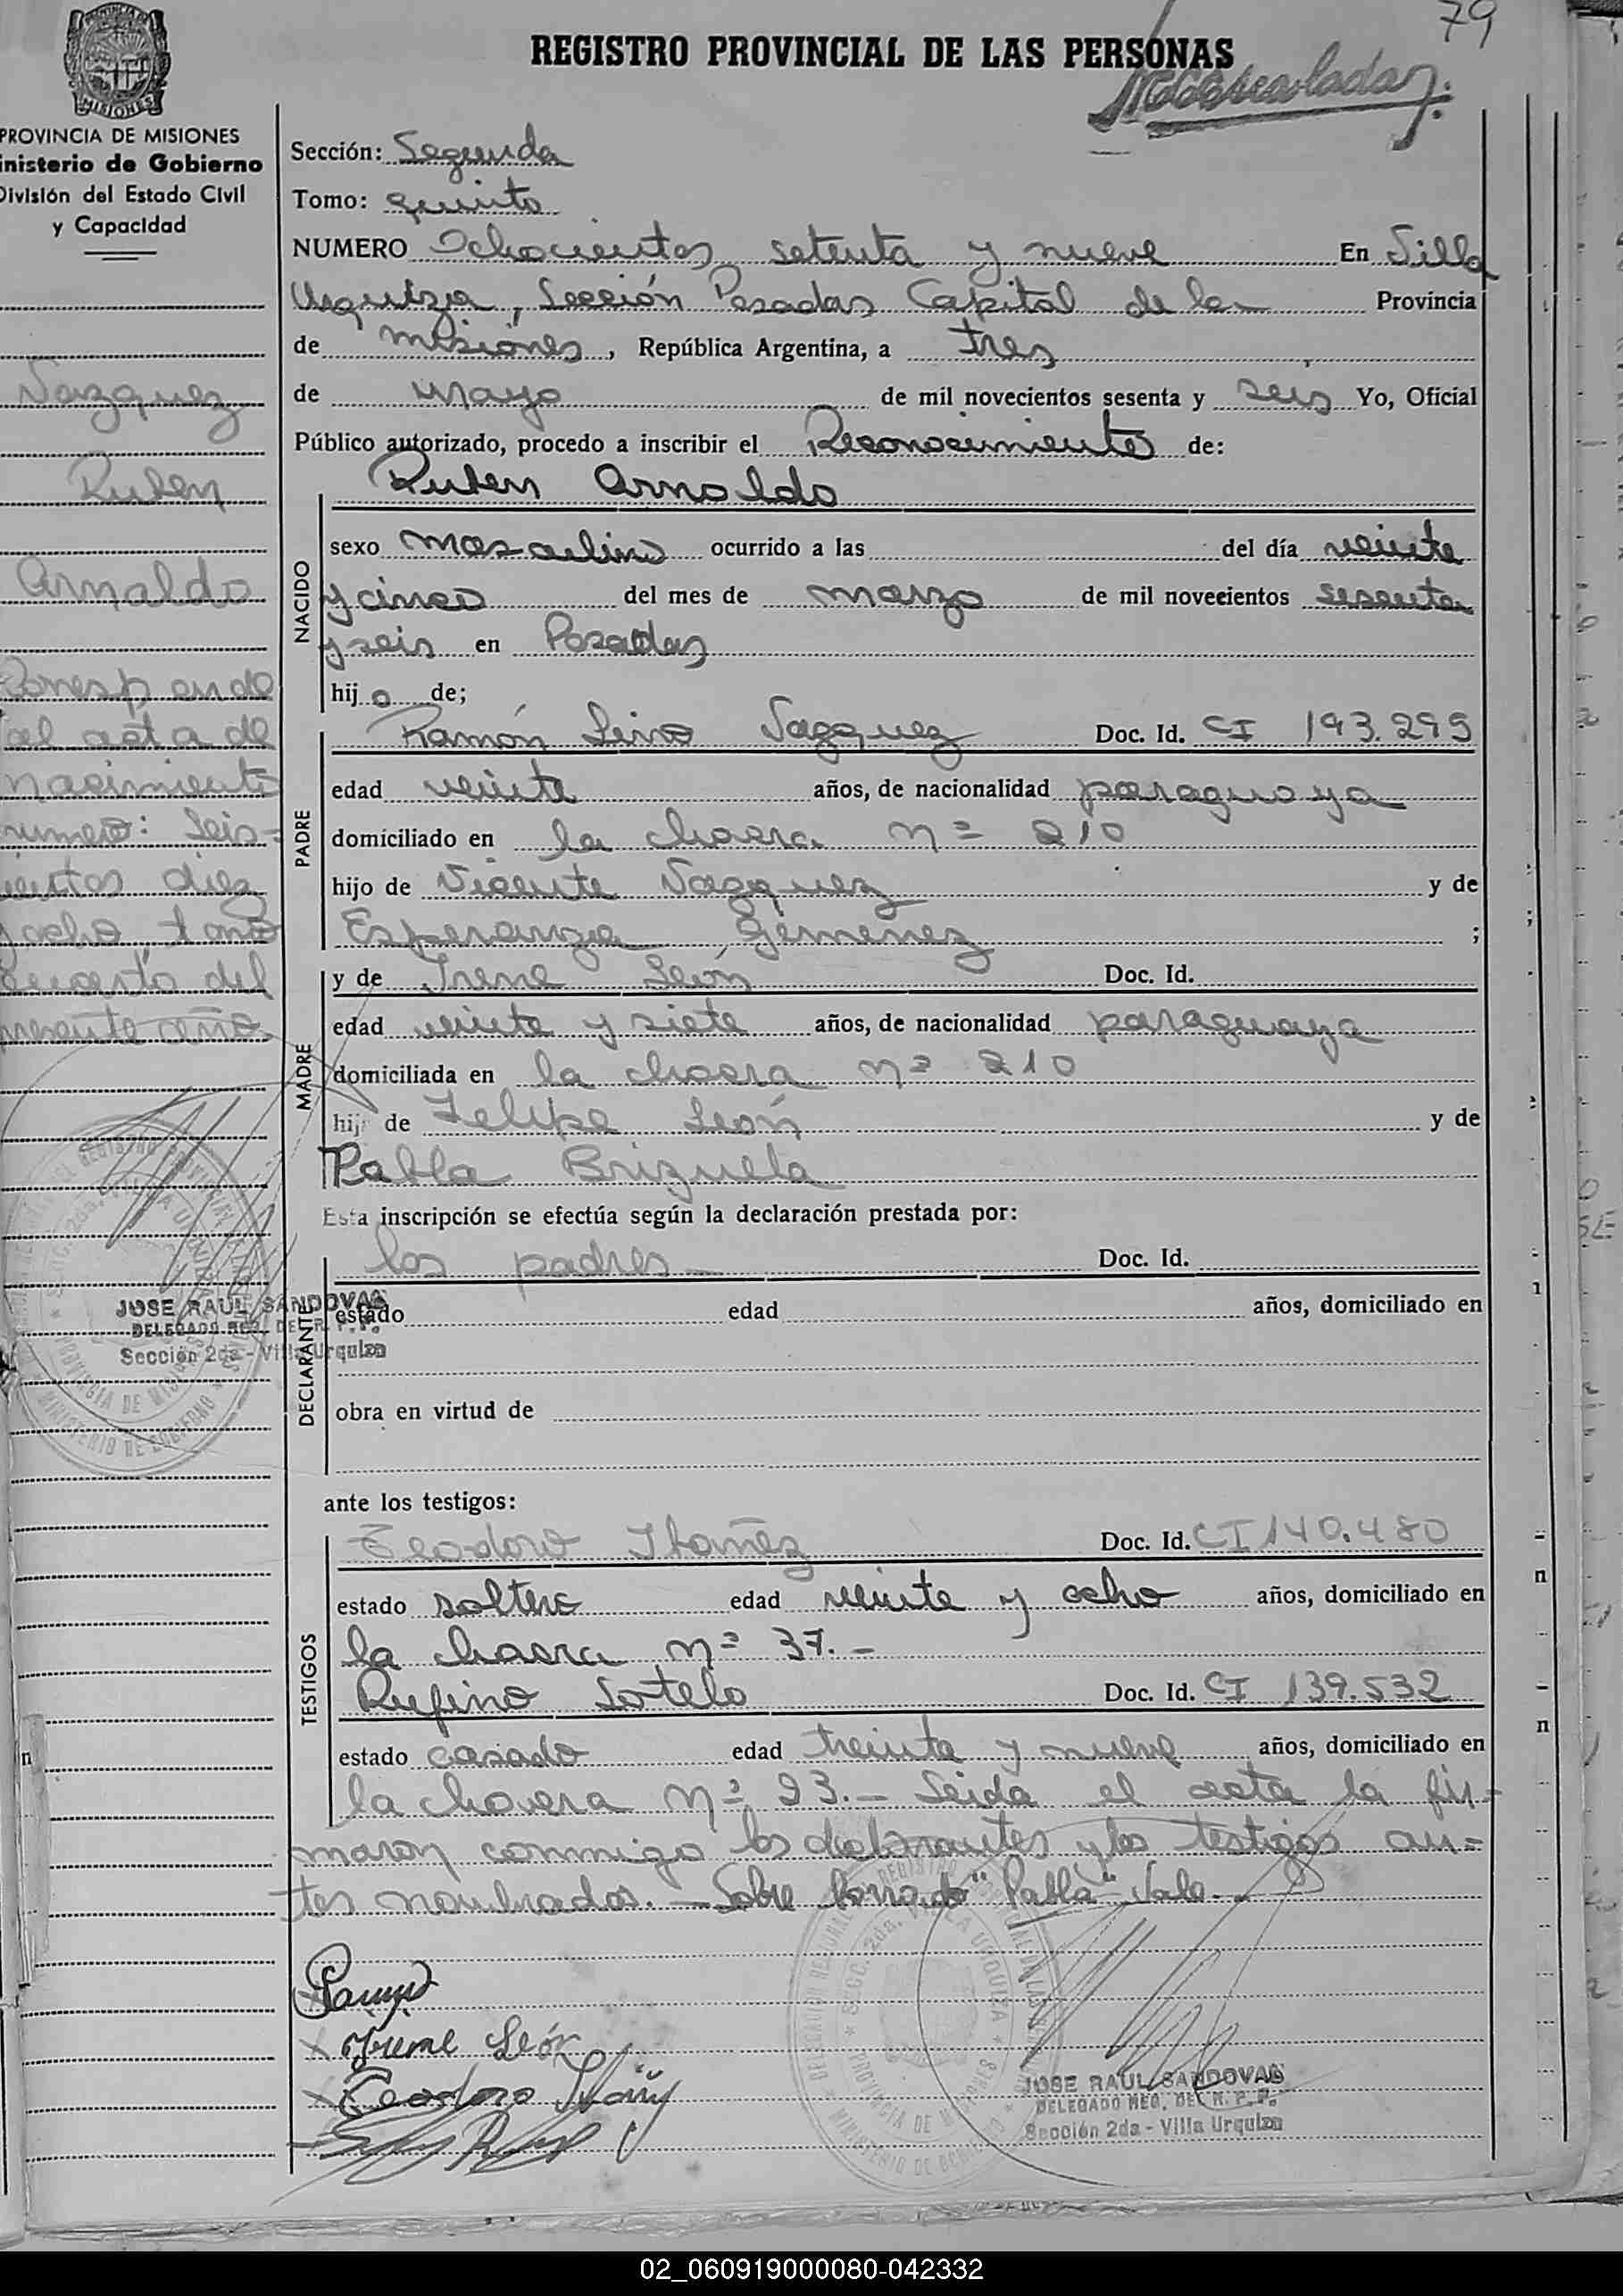 79
REGISTRO PROVINCIAL DE LAS PERSONAS
MISIONES
PROVINCIA DE MISIONES
inisterio de Gobierno
División del Estado Civil
y Capacidad
Vazquez
Ruben
Arnaldo
Corresponde
al acta de
nacimiento
número: Seis-
cientos diez
y ocho, tomo
cuarto del
presente año
JOSE RAUL SANDOVAL
DELEGADO REG. DEL R. P. P.
Sección 2da - Villa Urquiza
Sección: Segunda
Tomo: quinto
NUMERO Ochocientos setenta y nueve En Villa
Urquiza, Sección Posadas Capital de la Provincia
de misiones, República Argentina, a tres
de mayo de mil novecientos sesenta y seis Yo, Oficial
Público autorizado, procedo a inscribir el Reconocimiento de:
Ruben Arnoldo
NACIDO
sexo masculino ocurrido a las del día veinte
y cinco del mes de marzo de mil novecientos sesenta
y seis en Posadas
hijo de;
PADRE
Ramón Lino Vazquez Doc. Id. CI 193.295
edad veinte años, de nacionalidad paraguaya
domiciliado en la chacra nº 210
hijo de Vicente Vazquez y de
Esperanza Gimenez ;
MADRE
y de Irene León Doc. Id.
edad veinte y siete años, de nacionalidad paraguaya
domiciliada en la chacra nº 210
hij de Felipe León y de
Pabla Brizuela
Esta inscripción se efectúa según la declaración prestada por:
DECLARANTE
los padres Doc. Id.
estado edad años, domiciliado en
obra en virtud de
ante los testigos:
TESTIGOS
Teodoro Ibañez Doc. Id. CI 140.480
estado soltero edad veinte y ocho años, domiciliado en
la chacra nº 37.-
Rufino Sotelo Doc. Id. CI 139.532
estado casado edad treinta y nueve años, domiciliado en
la chacra nº 93.- Leida el acta la fir-
maron conmigo los declarantes y los testigos an=
tes nombrados.- Sobre borrado "Pabla" Vale.-
Irene León
Teodoro Ibañez
JOSE RAUL SANDOVAL
DELEGADO REG. DEL R. P. P.
Sección 2da - Villa Urquiza
02_060919000080-042332